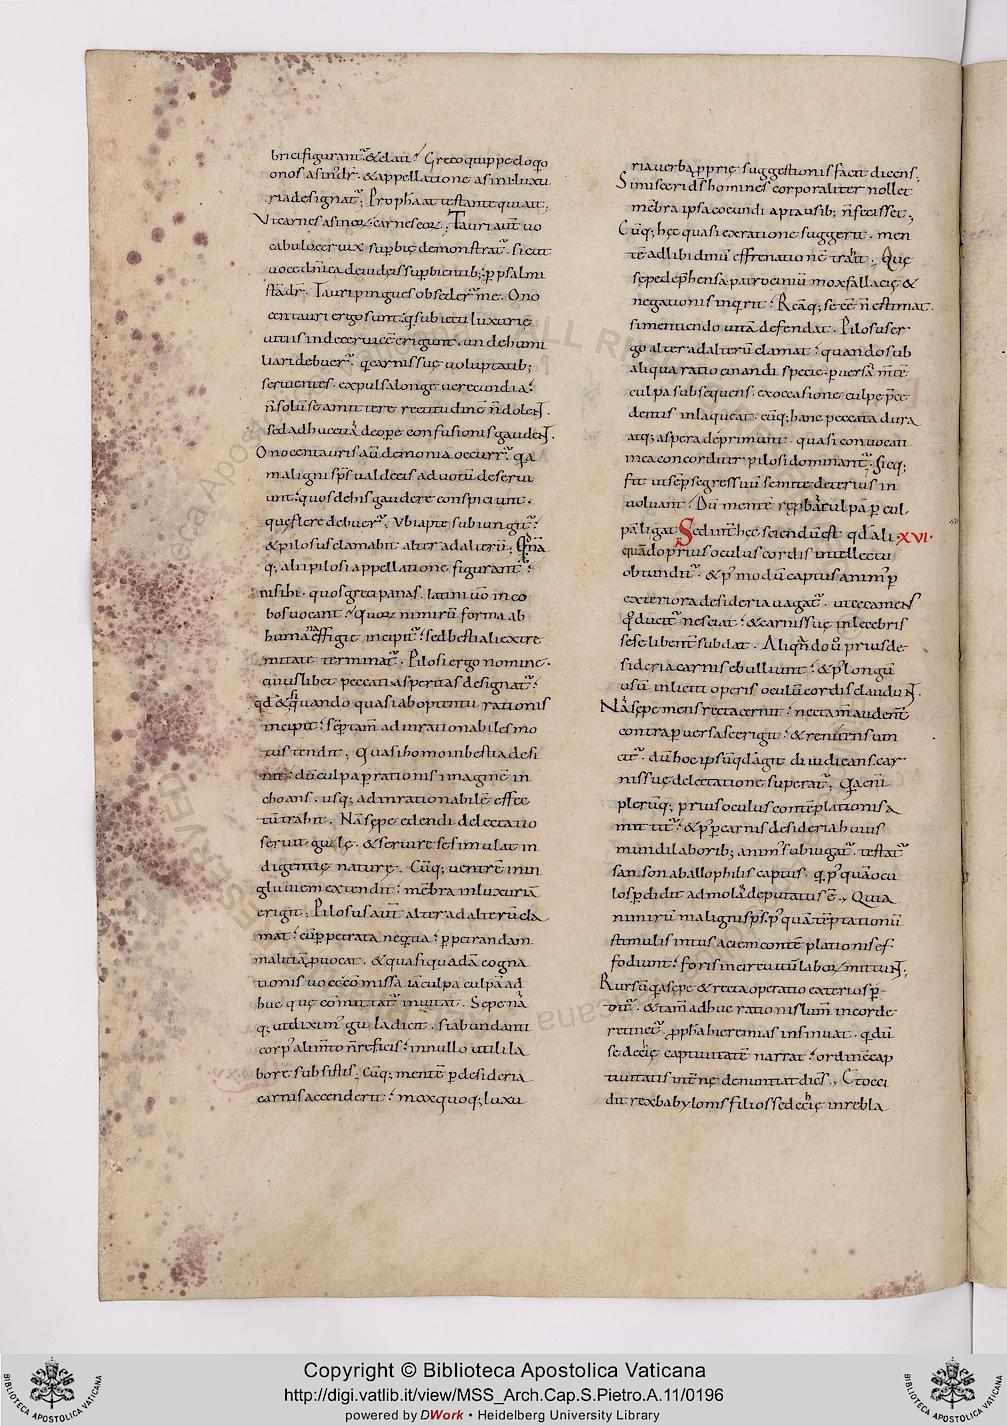 brici figurant᷑. & elati. Greco quippe eloquio
onos asin᷑ dr̄. & appellatione asini luxu
ria designat᷑; Propha attestante qui ait;
Vt carnes asinoꝝ carnes eoꝝ; Tauri aut̄ uo
cabulo ceruix supbię demonstrat᷑. sicut
uoce dn̄ica de iudeis supbientib; p psalmi
stā dr̄. Tauri pingues obseder᷑ me. Ono
centauri ergo sunt. q̄ subiecti luxurię
uitiis inde ceruicē erigunt. unde humi
liari debuer᷑. q̄ carnis suę uoluptatib;
seruientes. expulsa longe uerecundia.
n̄ solū se amittere rectitudinē n̄ dolent.
sed adhuc etiā de ope confusionis gaudent.
Onocentauris aū demonia occurr᷑. q̄a
maligni sp̄s ualde eis ad uotū deserui
unt. quos de his gaudere conspiciunt.
quę flere debuer᷑. Vbi apte subiungit᷑.
& pilosus clamabit alter ad alterū;
q; alii pilosi appellatione figurant᷑.
nisi hi. quos greci panas. latini uō inco
bos uocant. Quoꝝ nimirū forma ab
humana effigie incipit᷑. sed bestiali extre
mitate terminat᷑. Pilosi ergo nomine.
cuiuslibet peccati asperitas designat᷑.
qd & si quando quasi ab optentu rationis
incipit. sēp tam̄ ad inrationabiles mo
tus tendit; Quasi homo in bestia desi
nit. dū culpa p rationis imaginē in
choans. usq; ad inrationabilē effec
tū trahit. Nā sępe edendi delectatio
seruit gulę. & seruire se simulat in
digentię naturę. Cūq; uentrē in in
gluuiem extendit. mēbra in luxuriā
erigit; Pilosus aut̄ alter ad alterū cla
mat. cū ppetrata nequitia. ppetrandam
malitiā puocat. & quasi quadā cogna
tionis uoce cōmissa iā culpa culpā ad
huc quę cōmittat᷑ inuitat. Sępe nā
q; ut diximus gula dicit. si abundanti
corpus alimto n̄ reficis. in nullo utili la
bore subsistis; Cūq; mentē p desideria
carnis accenderit. mox quoq; luxu
ria uerba pprię suggestionis facit dicens;
Si misceri ds̄ homines corporaliter nollet
mēbra ipsa coeundi apta usib; n̄ fecisset;
Cūq; hęc quasi ex ratione suggerit. men
tē ad libidinū effrenationē trahit; Quę
sępe dephensa patrociniū mox fallacię &
negationis inqrit. Reāq; se eē n̄ estimat.
si mentiendo uitā defendat. Pilosus er
go alter ad alterū clamat. quando sub
aliqua ratiocinandi specie. puersā mtē
culpa subsequens. ex occasione culpę pce
dentis inlaqueat. cūq; hanc peccata dura
atq; aspera deprimunt. quasi conuocati
in ea concorditer pilosi dominant᷑; Sicq;
fit ut semp se gressuū semite deterius in
uoluant. Dū mentē reprobā culpā p cul
pā ligat Sed int̄ hęc sciendū est qd ali .XVI.
quādo prius oculus cordis intellectu
obtundit᷑. & post modū captus animus p
exteriora desideria uagat᷑. ut cęca mens
quo ducit᷑ nesciat. & carnis suę inlecebris
sese libent̄ subdat. Aliqn̄do uo prius de
sideria carnis ebulliunt. & post longū
usū inliciti operis oculū cordis claudunt.
Nā sępe mens recta cernit. nec tam̄ audent̄
contra puersa se erigit. & renitens uin
cit᷑. dū hoc ipsū qd agit diiudicans. car
nis suę delectatione superat᷑. Q̄a eni
plerūq; prius oculus contēplationis a
mittit᷑. & post p carnis desideria huius
mundi laborib; animus subiugat᷑. testat᷑
sanson ab allophilis captus. q post quā ocu
los pdidit ad molā deputatus ē. Quia
nimirū maligni sp̄s. post quā tēptationū
stimulis intus aciem contēplationis ef
fodiunt. foris in circuitū laborum mittunt;
Rursū q̄a sępe & recta operatio exterius p
dit᷑. & tam̄ adhuc rationis lum̄ in corde
retinet᷑. ppha hieremias insinuat. q dū
sedecię captiuitatē narrat. ordinē cap
tiuitatis int̄nę denuntiat dicens; Et occi
dit rex babylonis filios sedechię in rebla
Copyright © Biblioteca Apostolica Vaticana
http://digi.vatlib.it/view/MSS_Arch.Cap.S.Pietro.A.11/0196
powered by DWork • Heidelberg University Library
BIBLIOTECA APOSTOLICA VATICANA
BIBLIOTECA APOSTOLICA VATICANA